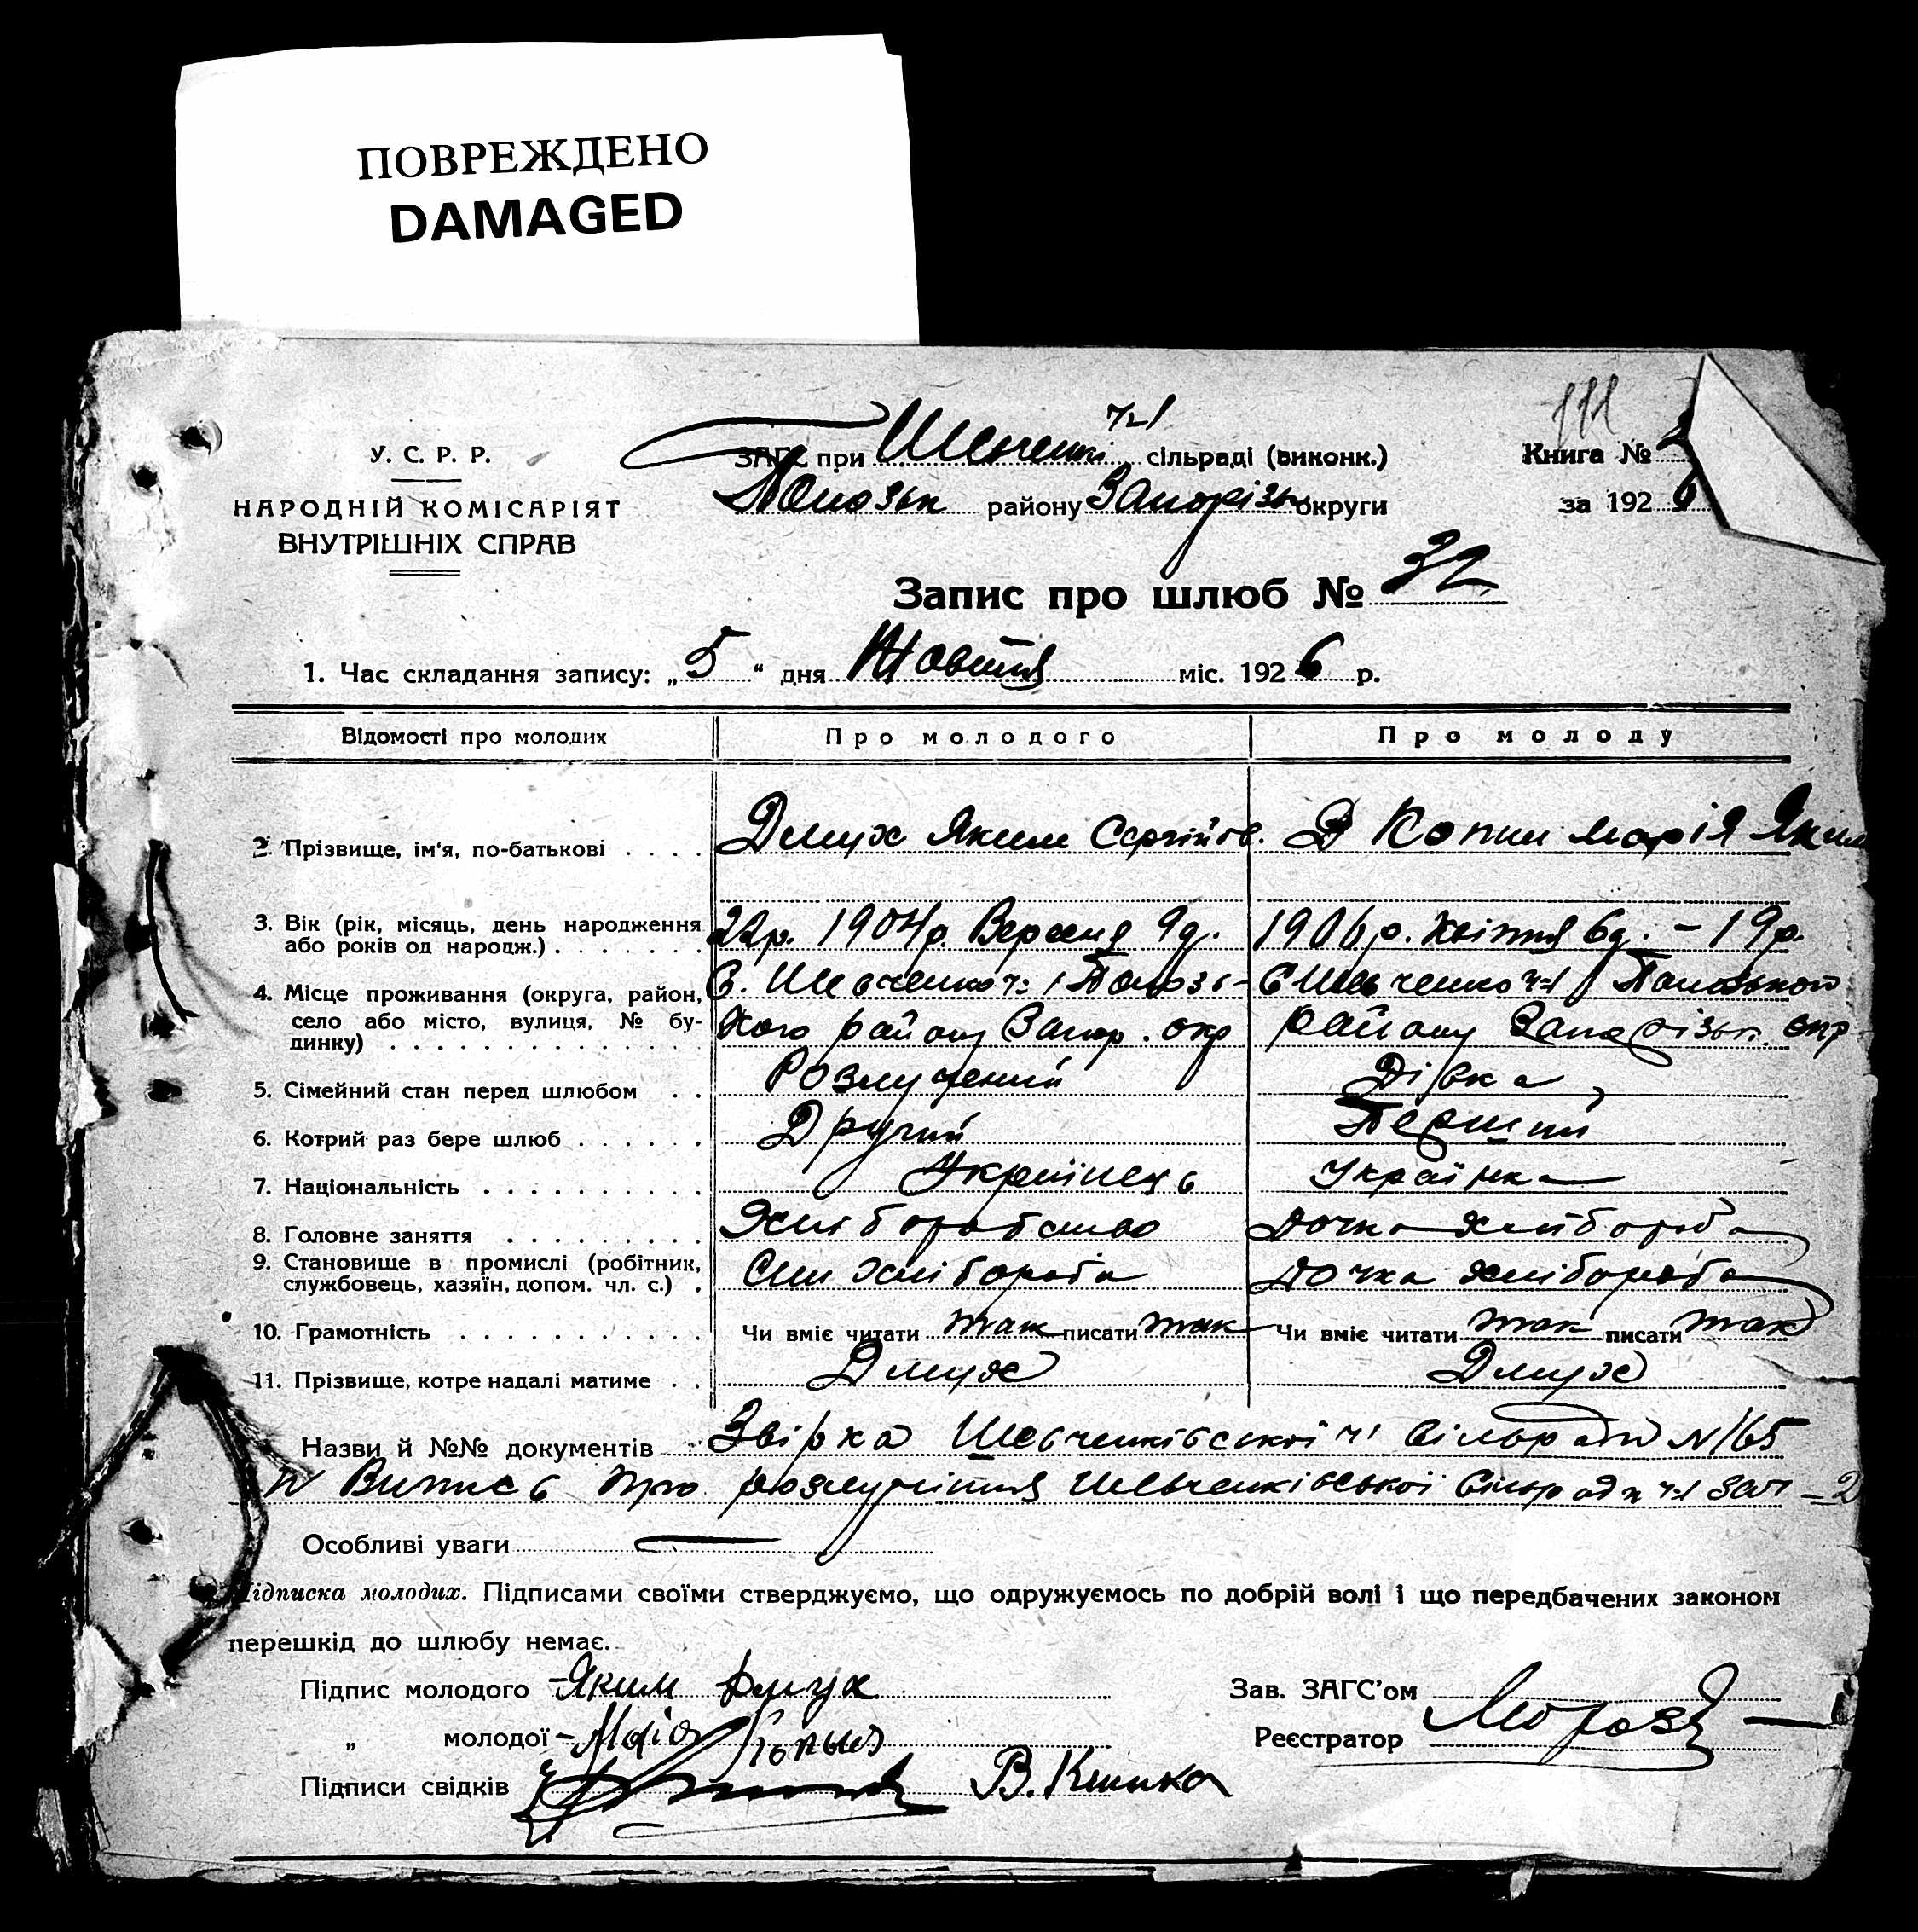 ПОВРЕЖДЕНО
DAMAGED
У. С. Р. Р.
НАРОДНІЙ КОМІСАРІЯТ
ВНУТРІШНІХ СПРАВ
ЗАГС при Шевченкі ч1 сільраді (виконк.)
Пологзьк району Запорізьк округи
Книга №
за 1926
Запис про шлюб № 32
1. Час складання запису: „5“ дня Жовтня міс. 1926 р.
Відомості про молодих
Про молодого
Про молоду
2. Прізвище, ім'я, по-батькові . . . .
Дмух Яким Сергійов.
Копи Марія Яким
3. Вік (рік, місяць, день народження
або років од народж.) . . . . . . .
22р. 1904р. Вересня 9д.
1906р. Квітня 6д. – 19р.
4. Місце проживання (округа, район,
село або місто, вулиця, № бу-
динку) . . . . . . . . . . . . .
С. Шевченко ч. 1 Полозь-
кого району Запор. окр
С Шевченко ч1 Полозького
району Запорізьк. окр
5. Сімейний стан перед шлюбом . .
Розлучений
Дівка
6. Котрий раз бере шлюб . . . . . .
Другий
Перший
7. Національність . . . . . . . . . .
Українець
Українка
8. Головне заняття . . . . . . . . .
Хліборобство
Дочка хлібороба
9. Становище в промислі (робітник,
службовець, хазяїн, допом. чл. с.) .
Син хлібороба
Дочка хлібороба
10. Грамотність . . . . . . . . . . .
Чи вміє читати так писати так
Чи вміє читати так писати так
11. Прізвище, котре надалі матиме . .
Дмух
Дмух
Назви й №№ документів Звірка Шевченківської ч1 Сільради №165
Випись про розлучіння Шевченківської Сільради ч1 зап – 2
Особливі уваги —
Підписка молодих. Підписами своїми стверджуємо, що одружуємось по добрій волі і що передбачених законом
перешкід до шлюбу немає.
Підпис молодого Яким Дмух
„ молодої
Підписи свідків
Зав. ЗАГС'ом
Реєстратор